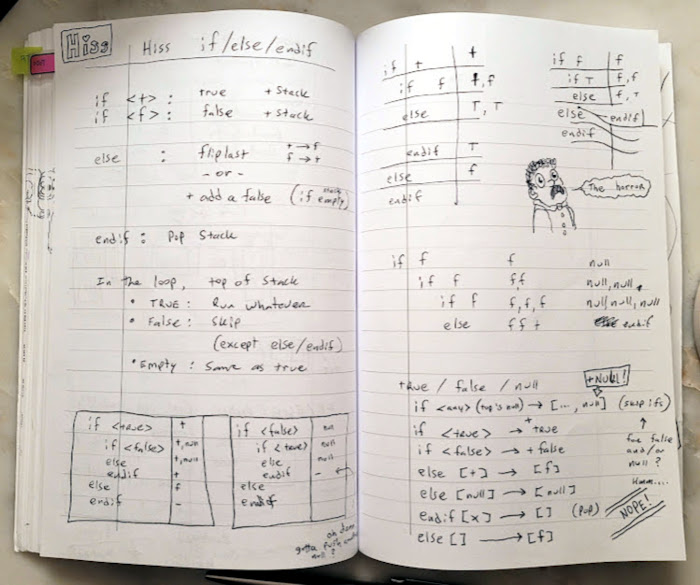 Hiss
Hiss if/else/endif
if <t> : true + Stack
if <f> : false + Stack
else : flip last t → f
f → t
- or -
+ add a false (if stack empty)
endif : Pop Stack
In the loop, top of stack
• TRUE : Run whatever
• False : Skip
(except else/endif)
• Empty : Same as true
if <true> +
if <false> t, null
else t, null
endif +
else f
endif -
if <false> null
if <true> null
else null
endif -
else
endif
oh damn
gotta push another
null ?
if t t
if f t, f
else T, T
endif T
else f
endif
if f f
if T f, f
else f, T
else endif
endif
The horror
if f f null
if f f,f null, null,
if f f, f, f null, null, null
else f f t endif
true / false / null
+Null!
if <any> (top's null) → [..., null] (skip ifs)
if <true> → + true
if <false> → + false
else [t] → [f]
else [null] → [null]
endif [x] → [] (pop)
else [] → [f]
for false
and/or
null ?
Hmm....
NOPE!